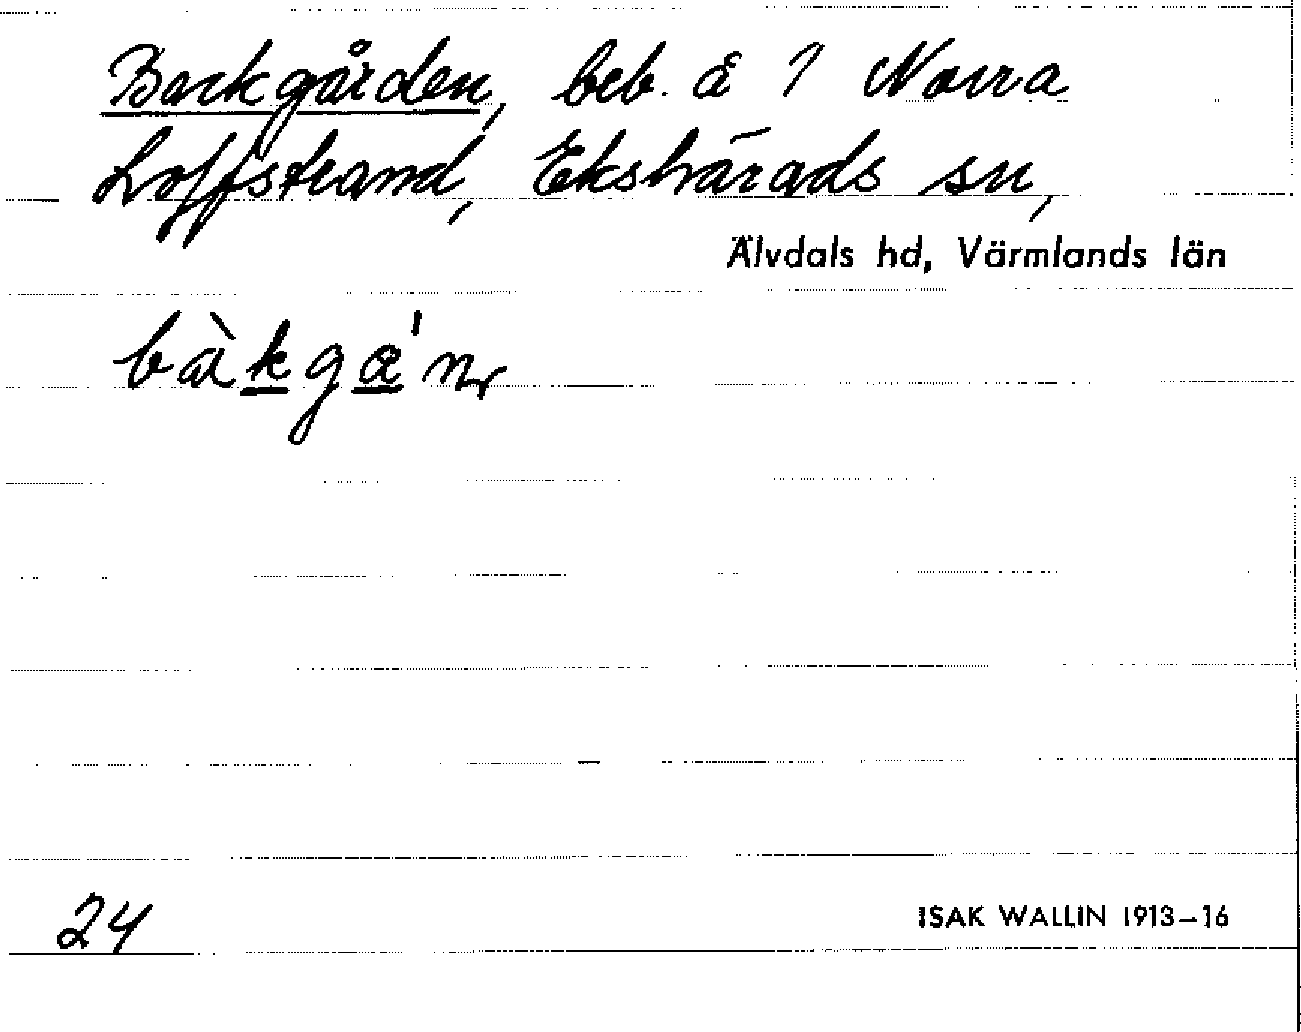 Backgården, beb. å 1 Norra
Loffstrand, Ekshärads sn,
Älvdals hd, Värmlands län
bàkgɑ'n
24
ISAK WALLIN 1913–16